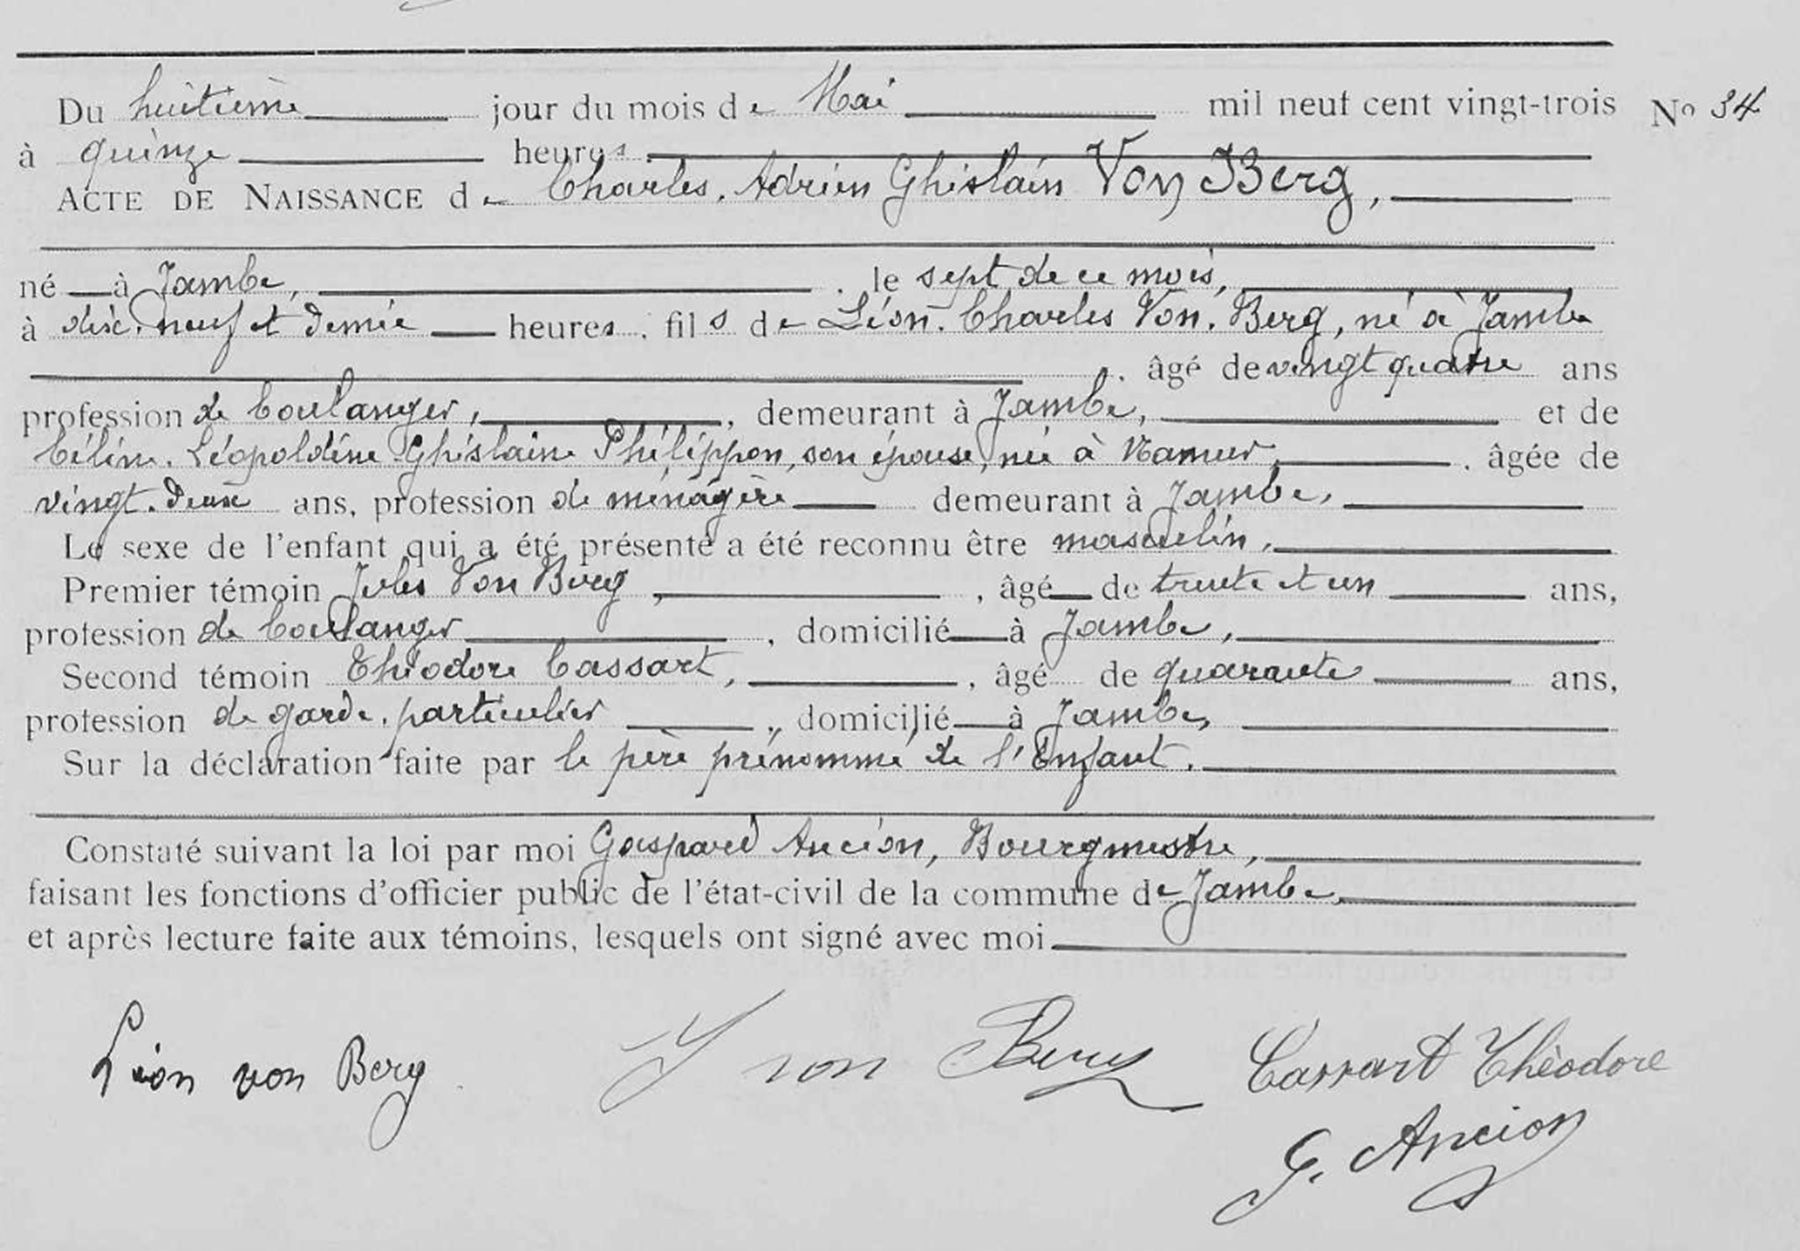 Du huitième jour du mois de Mai mil neuf cent vingt-trois No 34
à quinze heures
ACTE DE NAISSANCE de Charles, Adrien Ghislain Von Berg,
né à Jambe, le sept de ce mois,
à dix-neuf et demie heures, fils de Léon. Charles Von. Berg, né à Jambe
âgé de vingt quatre ans
profession de boulanger, demeurant à Jambe, et de
Céline. Léopoldine Ghislaine Philippon, son épouse, née à Namur, âgée de
vingt-deux ans, profession de ménagère demeurant à Jambe,
Le sexe de l'enfant qui a été présenté a été reconnu être masculin,
Premier témoin Jules Von Berg, âgé de trente et un ans,
profession de boulanger, domicilié à Jambe,
Second témoin Théodore Cassart, âgé de quarante ans,
profession de garde-particulier, domicilié à Jambe,
Sur la déclaration faite par le père prénommé de l'Enfant.
Constaté suivant la loi par moi Gaspard Ancion, Bourgmestre,
faisant les fonctions d'officier public de l'état-civil de la commune de Jambe,
et après lecture faite aux témoins, lesquels ont signé avec moi
Léon von Berg J von Berg Cassart Théodore
G. Ancion